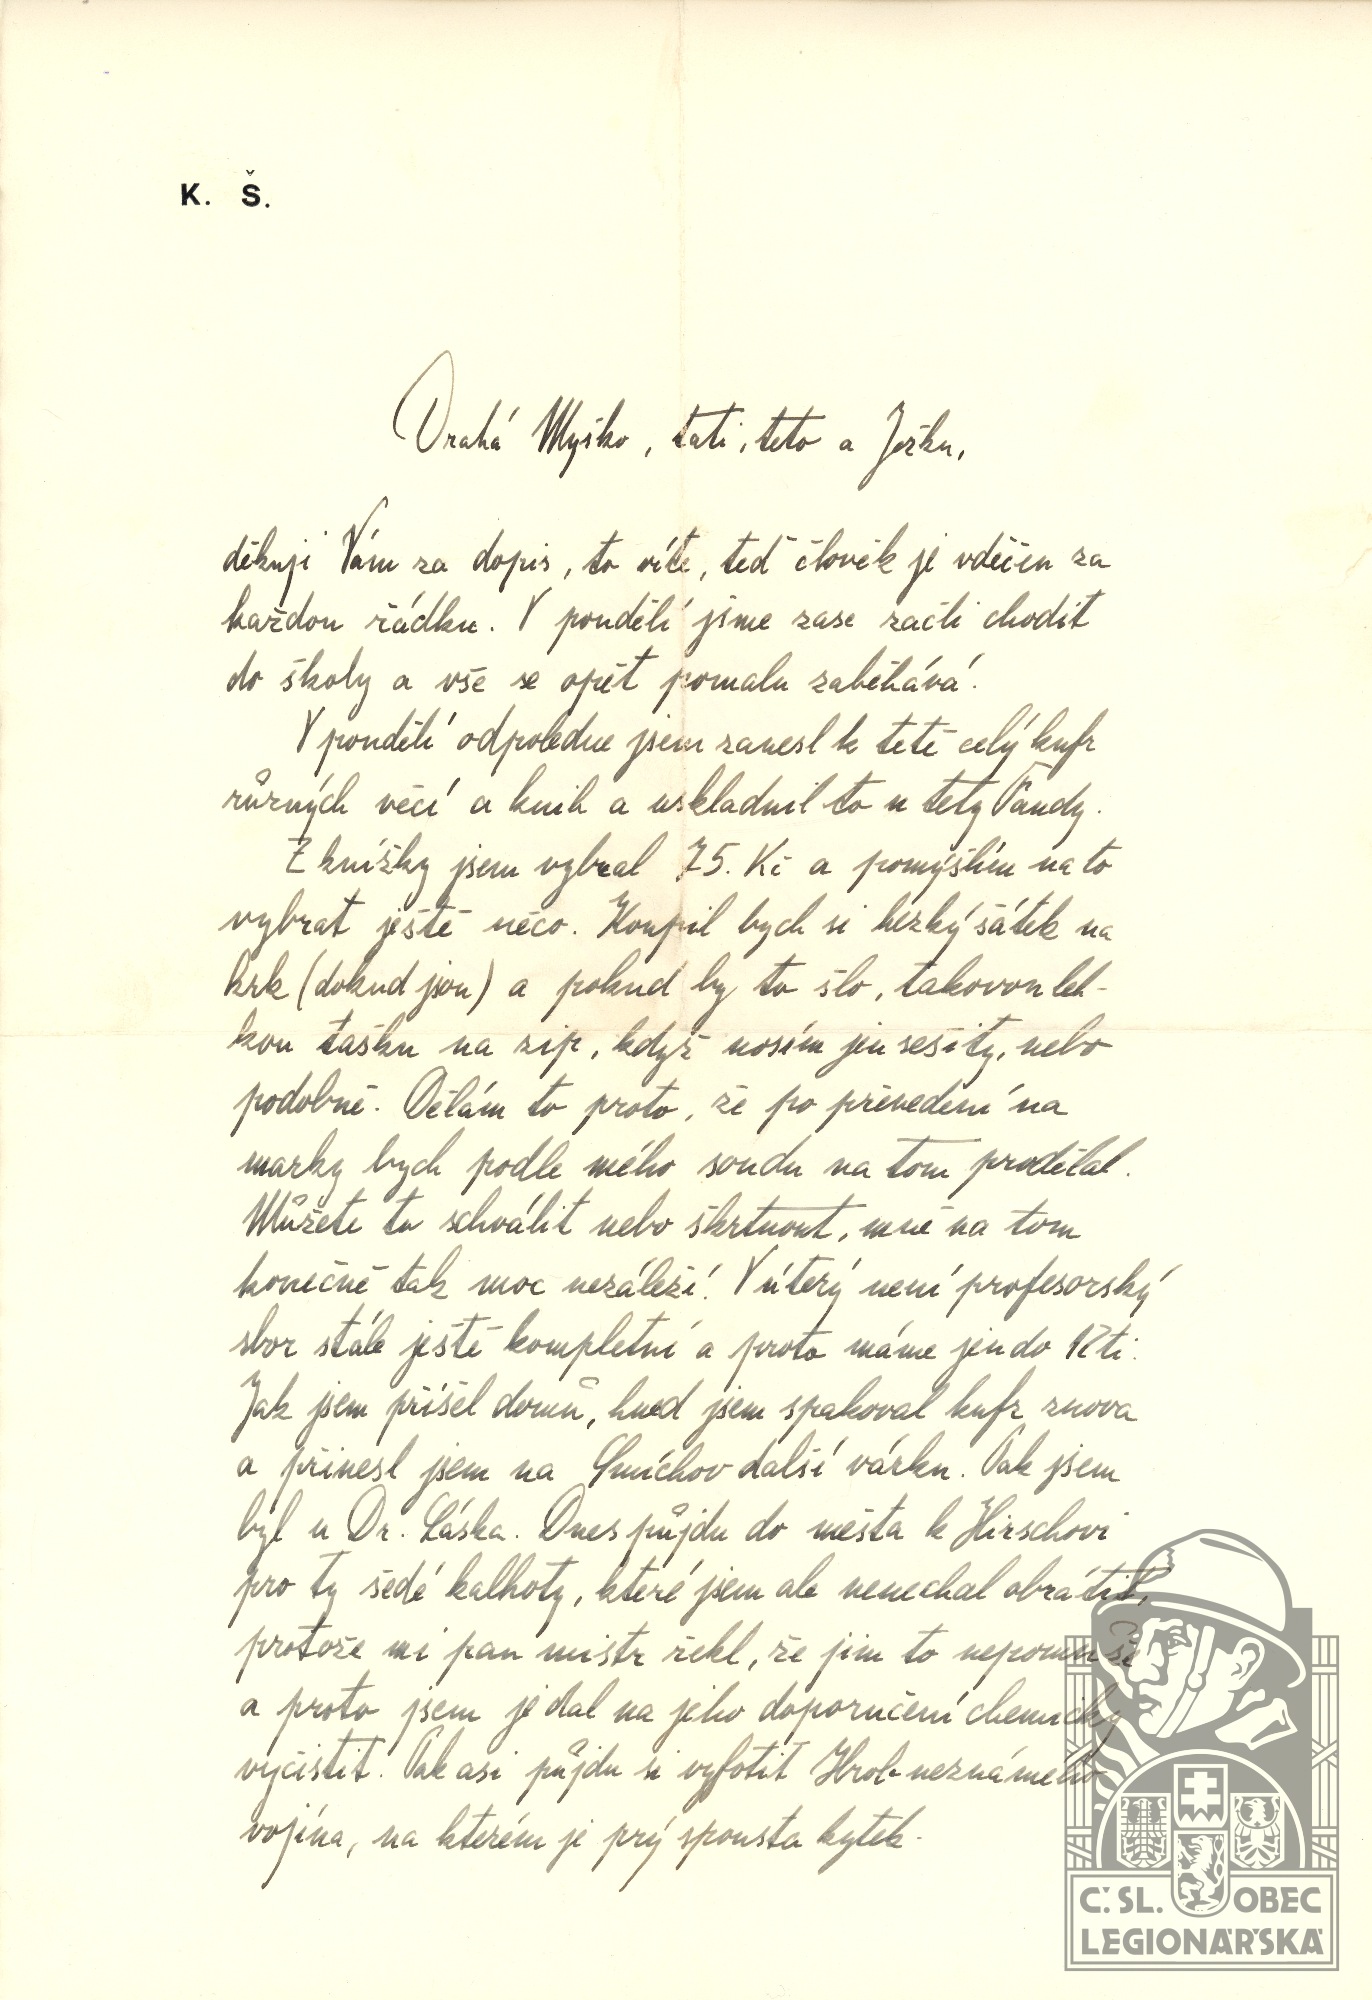 K. Š.
Drahá Myško, tati, teto a Ježku,
děkuji Vám za dopis, to víte, teď člověk je vděčen za
každou řádku. V pondělí jsme zase začli chodit
do školy a vše se opět pomalu zaběhává.
V pondělí odpoledne jsem zanesl k tetě celý kufr
různých věcí a knih a uskladnil to u tety Pandy.
Z knížky jsem vybral 75. Kč a pomýšlím na to
vybrat ještě něco. Koupil bych si hezký šátek na
krk (dokud jsou) a pokud by to šlo, takovou leh-
kou tašku na zip, když nosím jen sešity, nebo
podobně. Dělám to proto, že po převedení na
marky bych podle mého soudu na tom prodělal.
Můžete to schválit nebo škrtnout, mně na tom
konečně tak moc nezáleží. V úterý není profesorský
sbor stále ještě kompletní a proto máme jen do 12ti.
Jak jsem přišel domů, hned jsem spakoval kufr znova
a přinesl jsem na Smíchov další várku. Pak jsem
byl u Dr. Láska. Dnes půjdu do města k Hirschovi
pro ty šedé kalhoty, které jsem ale nenechal obrátit,
protože mi pan mistr řekl, že jim to nepomůže
a proto jsem je dal na jeho doporučení chemicky
vyčistit. Pak asi půjdu si vyfotit Hrob neznámého
vojína, na kterém je prý spousta kytek.
Č. SL. OBEC
LEGIONÁŘSKÁ